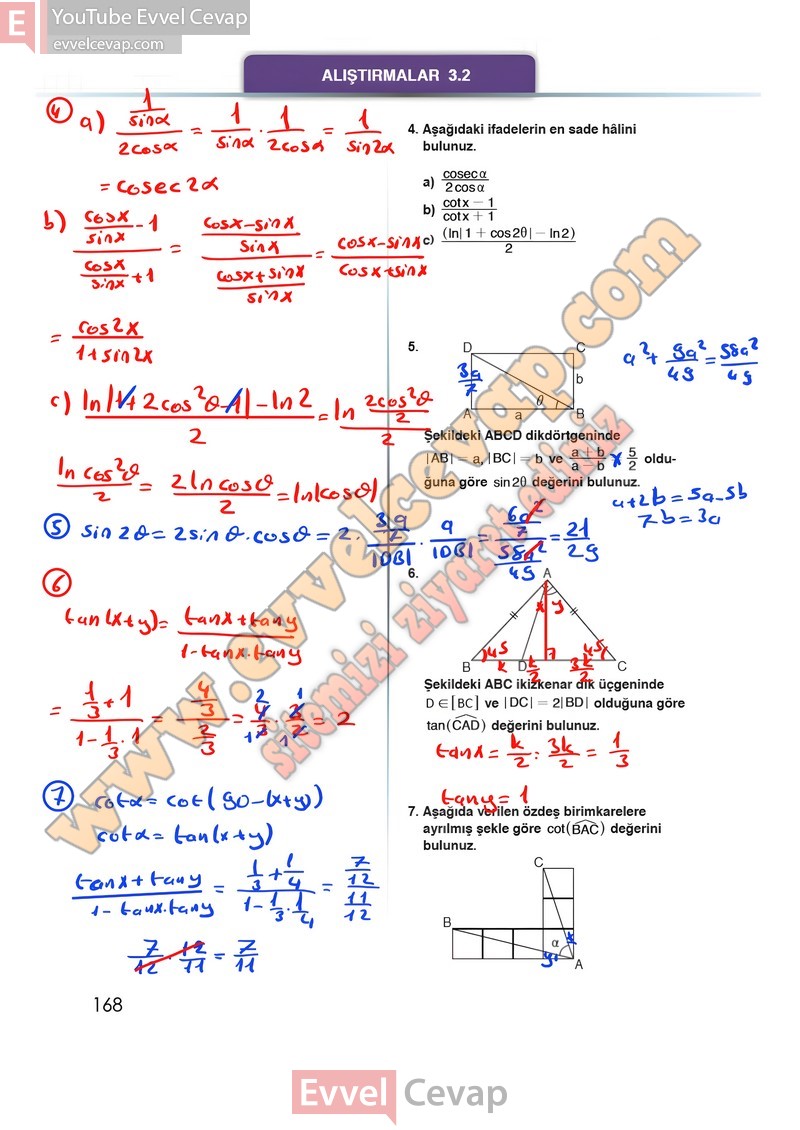 E YouTube Evvel Cevap
evvelcevap.com
ALIŞTIRMALAR 3.2
4. Aşağıdaki ifadelerin en sade hâlini
bulunuz.
a) cosec α / 2 cos α
b) cot x − 1 / cot x + 1
c) (ln| 1 + cos 2θ | − ln 2) / 2
5.
D C
b
θ
A a B
3a/7
a² + 9a²/49 = 58a²/49
Şekildeki ABCD dikdörtgeninde
|AB| = a, |BC| = b ve a + b / a − b × 5/2 oldu-
ğuna göre sin 2θ değerini bulunuz.
a+2b = 5a-5b
7b = 3a
6.
A
x y
45 45
B k D k/2 3k/2 C
Şekildeki ABC ikizkenar dik üçgeninde
D ∈ [BC] ve |DC| = 2|BD| olduğuna göre
tan(CAD) değerini bulunuz.
tanx = k/2 : 3k/2 = 1/3
tany = 1
7. Aşağıda verilen özdeş birimkarelere
ayrılmış şekle göre cot(BAC) değerini
bulunuz.
C
B
α x
y A
4 a) 1/sinα / 2cosα = 1/sinα · 1/2cosα = 1/sin2α
= cosec 2α
b) cosx/sinx - 1 / cosx/sinx + 1 = cosx-sinx/sinx / cosx+sinx/sinx = cosx-sinx / cosx+sinx
= cos2x / 1+sin2x
c) ln|1+2cos²θ-1| - ln2 / 2 = ln 2cos²θ/2 / 2
ln cos²θ / 2 = 2 ln cosθ / 2 = ln|cosθ|
5 sin 2θ = 2 sin θ · cosθ = 2 · 3a/7 / |DB| · a / |DB| = 6a²/7 / 58a²/49 = 21/29
6
tan(x+y) = tanx + tany / 1-tanx.tany
= 1/3 + 1 / 1 - 1/3 · 1 = 4/3 / 2/3 = 4/3 · 3/2 = 2
7 cotα = cot(90-(x+y))
cotα = tan(x+y)
tanx + tany / 1 - tanx.tany = 1/3 + 1/4 / 1 - 1/3 · 1/4 = 7/12 / 11/12
7/12 · 12/11 = 7/11
www.evvelcevap.com
sitemizi ziyaret ediniz
168
Evvel Cevap